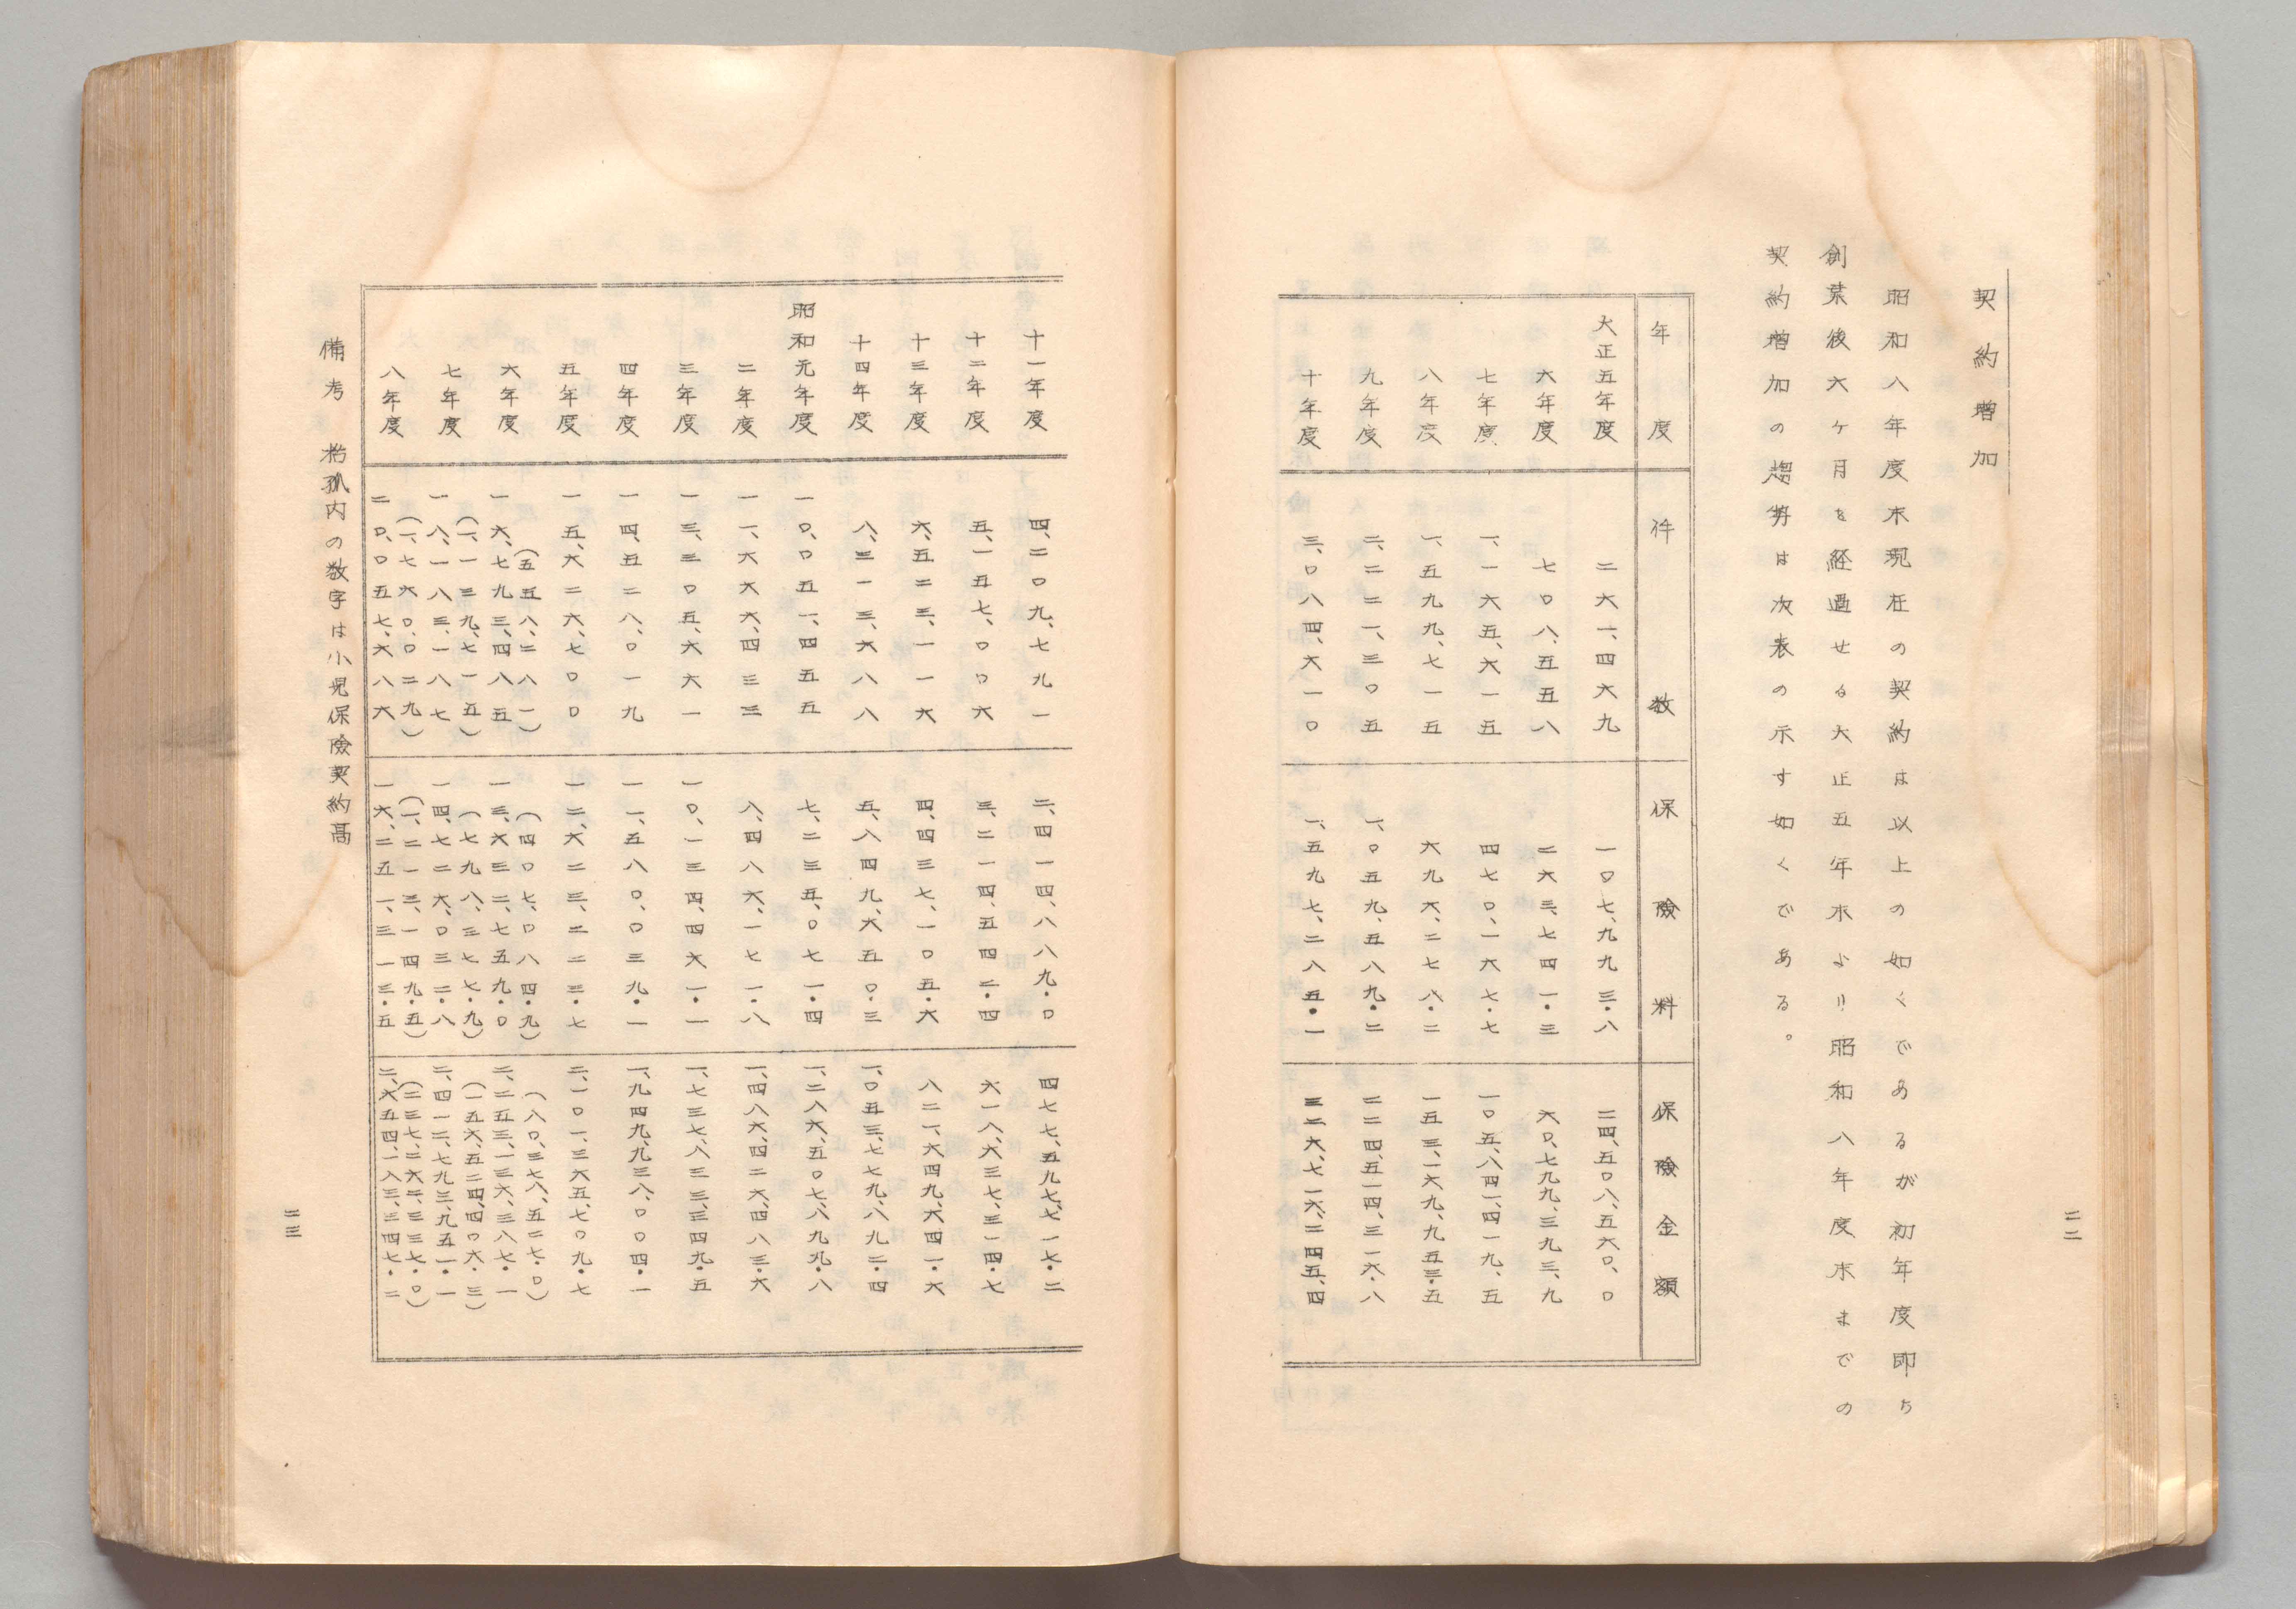 二二
契約増加
昭和八年度末現在の契約は以上の如くであるが初年度即ち
創業後六ヶ月を経過せる大正五年末より昭和八年度末までの
契約増加の趨勢は次表の示す如くである。
年度 件数 保険料 保険金額
大正五年度 二六一、四六九 一〇七、九九三・八 二四、五〇八、五六〇、〇
六年度 七〇八、五五八 二六三、七四一・三 六〇、七九九、三九三、九
七年度 一、一六五、六一五 四七〇、一六七・七 一〇五、八四一、四一九、五
八年度 一、五九九、七一五 六九六、二七八・二 一五三、一六九、九五三・五
九年度 二、二二一、三〇五 一、〇五九、五八九・二 二二四、五一四、三一六・八
十年度 三、〇八四、六一〇 一、五九七、二八五・一 三二六、七一六、二四五、四
十一年度 四、二〇九、七九一 二、四一四、八八九・〇 四七七、五九七、七一七・二
十二年度 五、一五七、〇〇六 三、二一四、五四二・四 六一八、六三七、三一四・七
十三年度 六、五二三、一一六 四、四三七、一〇五・六 八二一、六四九、六四一・六
十四年度 八、三一三、六八八 五、八四九、六五〇・三 一、〇五三、七七九、八九二・四
昭和元年度 一〇、〇五一、四五五 七、二三五、〇七一・四 一、二八六、五〇七、八九九・八
二年度 一一、六六六、四三三 八、四八六、一七一・八 一、四八六、四二六、四八三・六
三年度 一三、三〇五、六六一 一〇、一三四、四六一・一 一、七三七、八三三、三四九・五
四年度 一四、五二八、〇一九 一一、五八〇、〇三九・一 一、九四九、九三八、〇〇四・一
五年度 一五、六二六、七〇〇 一二、六二三、二二三・七 二、一〇一、三六五、七〇九・七
(五五八、二八一) (四〇七、〇八四・九) (八〇、三七八、五二七・〇)
六年度 一六、七九三、四八五 一三、六三二、七五九・〇 二、二五三、一三六、三八七・一
(一、一三九、七一五) (七九八、三七七・九) (一五六、五二四、四〇六・三)
七年度 一八、一八三、一八七 一四、七二六、〇三二・八 二、四一二、七九三、九五一・一
(一、七六〇、〇二九) (一、二一三、一四九・五) (二三七、二六二、三三七・〇)
八年度 二〇、〇五七、六八六 一六、二五一、三一三・五 二、六五四、一八三、三四七・二
備考 括弧内の数字は小児保険契約高
二三